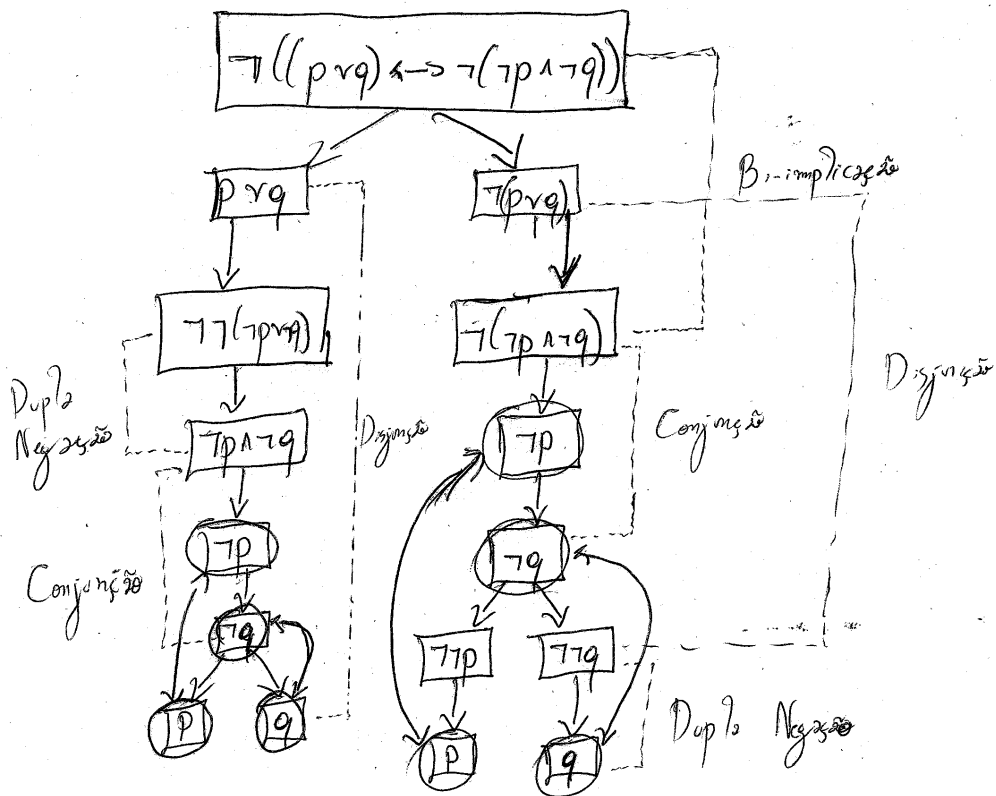 ¬((p∨q) <-> ¬(¬p∧¬q))
Bi-implicação
p∨q
¬(p∨q)
¬¬(¬p∨¬q)
¬(¬p∧¬q)
Disjunção
Dupla
Negação
¬p∧¬q
Disjunção
¬p
Conjunção
¬p
¬q
Conjunção
¬q
¬¬p
¬¬q
p
q
Dupla Negação
p
q